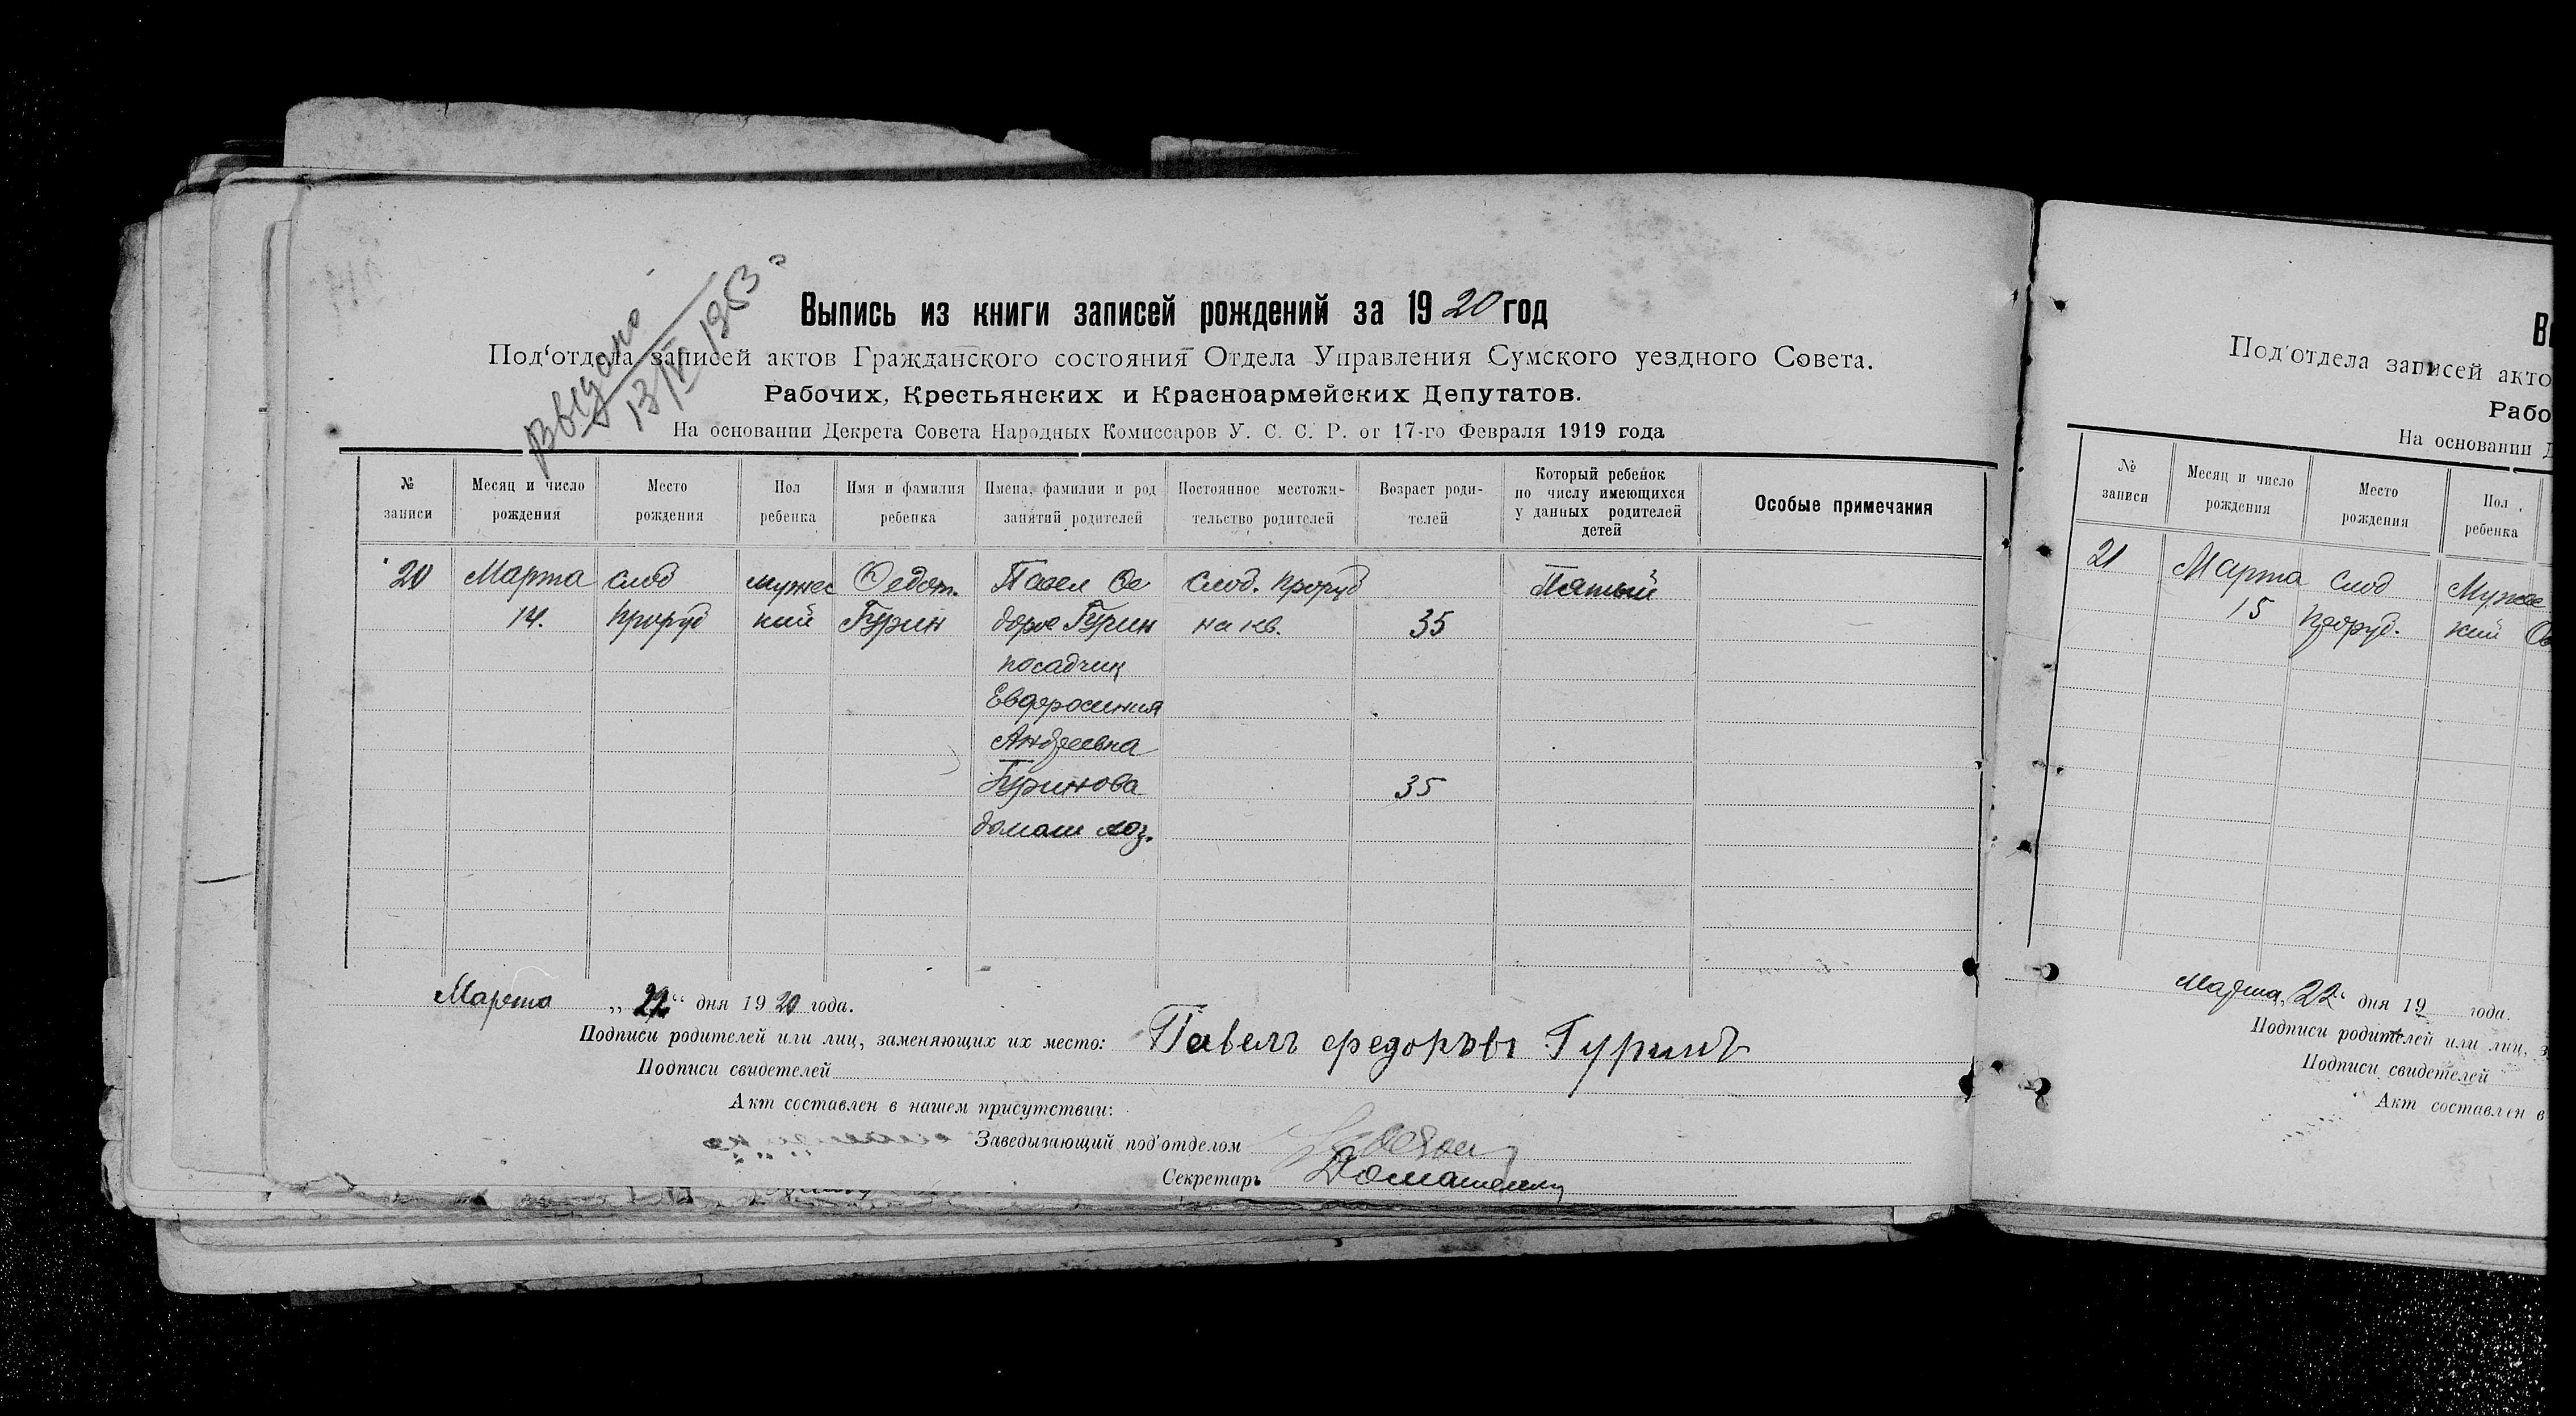 Выдано
13/V 1953
Выпись из книги записей рождений за 1920 год
Под'отдела записей актов Гражданского состояния Отдела Управления Сумского уездного Совета.
Рабочих, Крестьянских и Красноармейских Депутатов.
На основании Декрета Совета Народных Комиссаров У. С. С. Р. от 17-го Февраля 1919 года
№ записи
Месяц и число рождения
Место рождения
Пол ребенка
Имя и фамилия ребенка
Имена, фамилии и род занятий родителей
Постоянное местожи-тельство родителей
Возраст роди-телей
Который ребенок по числу имеющихся у данных родителей детей
Особые примечания
20 Марта слод мужес Федот. Павел Фе слод. Проруб Пятый
14. Проруб кий Гурин доров Гурин на кв. 35
посадчик
Евфросиния
Андреевна
Гуринова 35
домаш хоз.
Марта „22“ дня 1920 года.
Подписи родителей или лиц, заменяющих их место: Павелъ федоровъ Гуринъ
Подписи свидетелей
Акт составлен в нашем присутствии:
Заведывающий под'отделом
Секретарь
Под'отдела записей акто
Рабо
На основании
№ записи
Месяц и число рождения
Место рождения
Пол ребенка
21 Марта слод Мужес
15 Проруб. кий
Марта „22“ дня 19 года.
Подписи родителей или лиц,
Подписи свидетелей
Акт составлен в